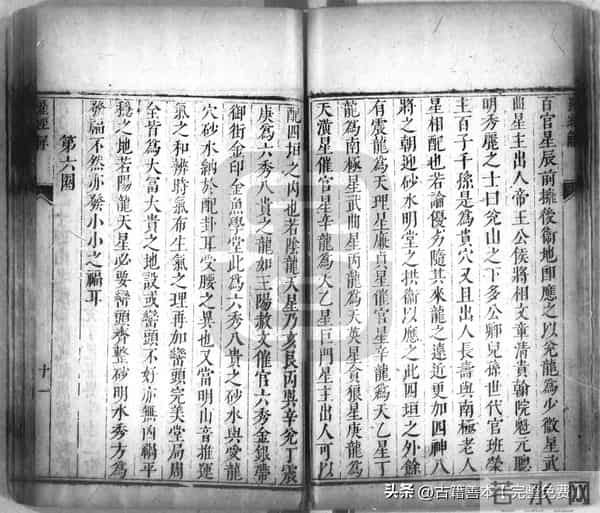 百官星辰前擁後衛地卽應之以兌龍為少微星武
曲星主出人帝王公侯將相文章清貴翰院魁元聰
明秀麗之士曰兌山之下多公卿兒孫世代官班榮
主百子千孫是為貴穴又且出人長壽與南極老人
星相配也若論優劣隨其來龍之遠近更加四神八
將之朝迎砂水明堂之拱衛以應之此四垣之外餘
有震龍為天理星廉貞星催官星辛龍為天乙星丁
龍為南極星武曲星丙龍為天英星貪狼星庚龍為
天潢星催官星辛龍為天乙星巨門星主出人可以
配四垣之内也若陰龍天星乃亥艮丙巽辛兌丁震
庚為六秀八貴之龍如玉陽赦文催官六秀金銀帶
御街金印金魚學堂此為六秀八貴之砂水與愛龍
穴砂水納於配卦耳受腰之異也又當明山音推運
氣之和辨時氣布生氣之理再加巒頭完美堂局周
全皆為大富大貴之地設或巒頭不好亦無内稱平
穩之地若陽龍天星必要巒頭齊整砂明水秀方為
發福不然亦發小小之福耳
第六圈
經解
十一
头条 @古籍善本